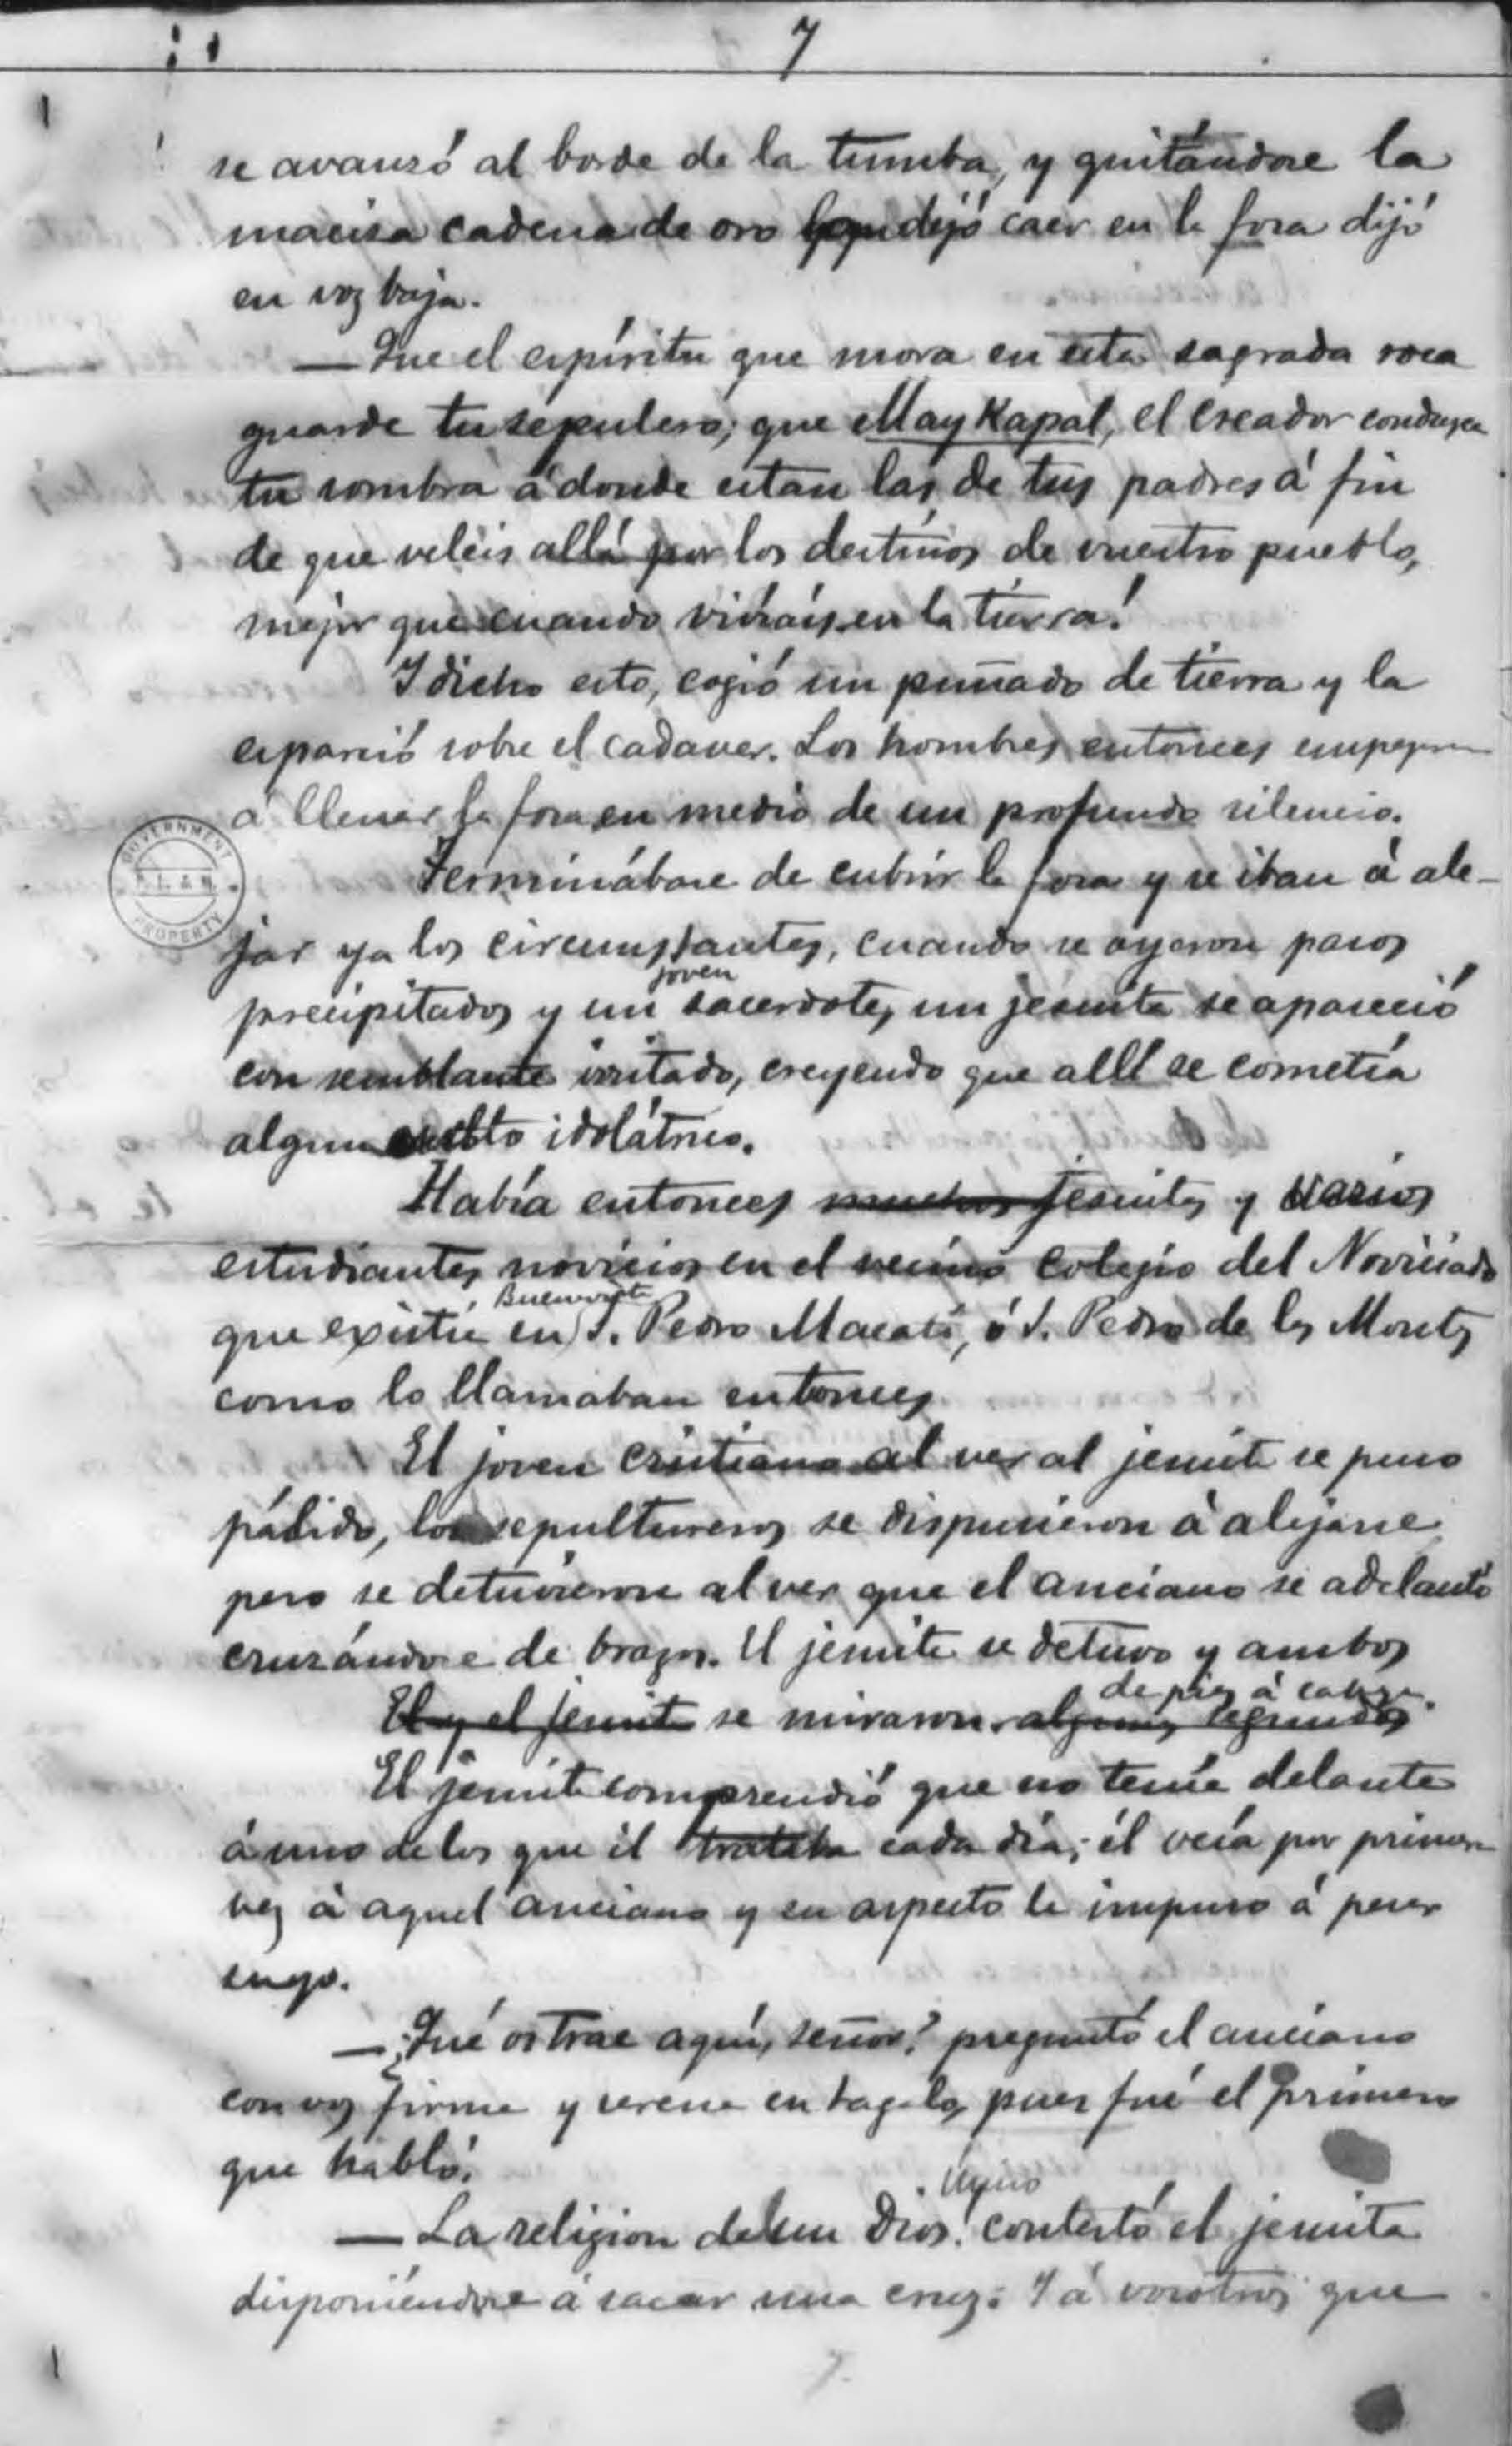 7
se avanzó al borde de la tumba, y quitándose la
maciza cadena de oro dejó caer en la fosa dijó
en voz baja.
— Que el espíritu que mora en esta sagrada roca
guarde tu sepulcro; que May Kapal, el Creador conduzca
tu sombra á donde estan las de tus padres á fin
de que veleis allá por los destinos de vuestro pueblo,
mejor que cuando viviais en la tierra!
I dicho esto, cogió un puñado de tierra y la
esparció sobre el cadaver. Los hombres entonces empezaron
á llenar la fosa en medio de un profundo silencio.
GOVERNMENT
PROPERTY
Terminábase de cubrir la fosa y se iban á ale-
jar ya los circumstantes, cuando se oyeron pasos
joven
precipitados y un sacerdote, un jesuita se apareció
con semblante irritado, creyendo que allí se cometía
algun culto idolátrico.
Había entonces muchos jesuitas y varios
estudiantes novicios en el vecino Colegio del Noviciado
que existia en S. Pedro Macati, ó S. Pedro de los Montes
como lo llamaban entonces.
El joven cristiano al ver al jesuita se puso
pálido, los sepultureros se dispusieron á alejarse
pero se detuvieron al ver que el anciano se adelantó
cruzándose de brazos. El jesuita se detuvo y ambos
de pies á cabeza.
El y el jesuita se miraron algunos segundos
El jesuita comprendió que no tenia delante
á uno de los que él trataba cada dia; él veía por primera
vez á aquel anciano y su aspecto le impuso á pesar
suyo.
— ¿Qué os trae aquí, señor? preguntó el anciano
con voz firme y serena en tagalo, pues fué el primero
que habló.
— La religion de un Dios! contestó el jesuita
disponiéndose á sacar una cruz: I á vosotros que